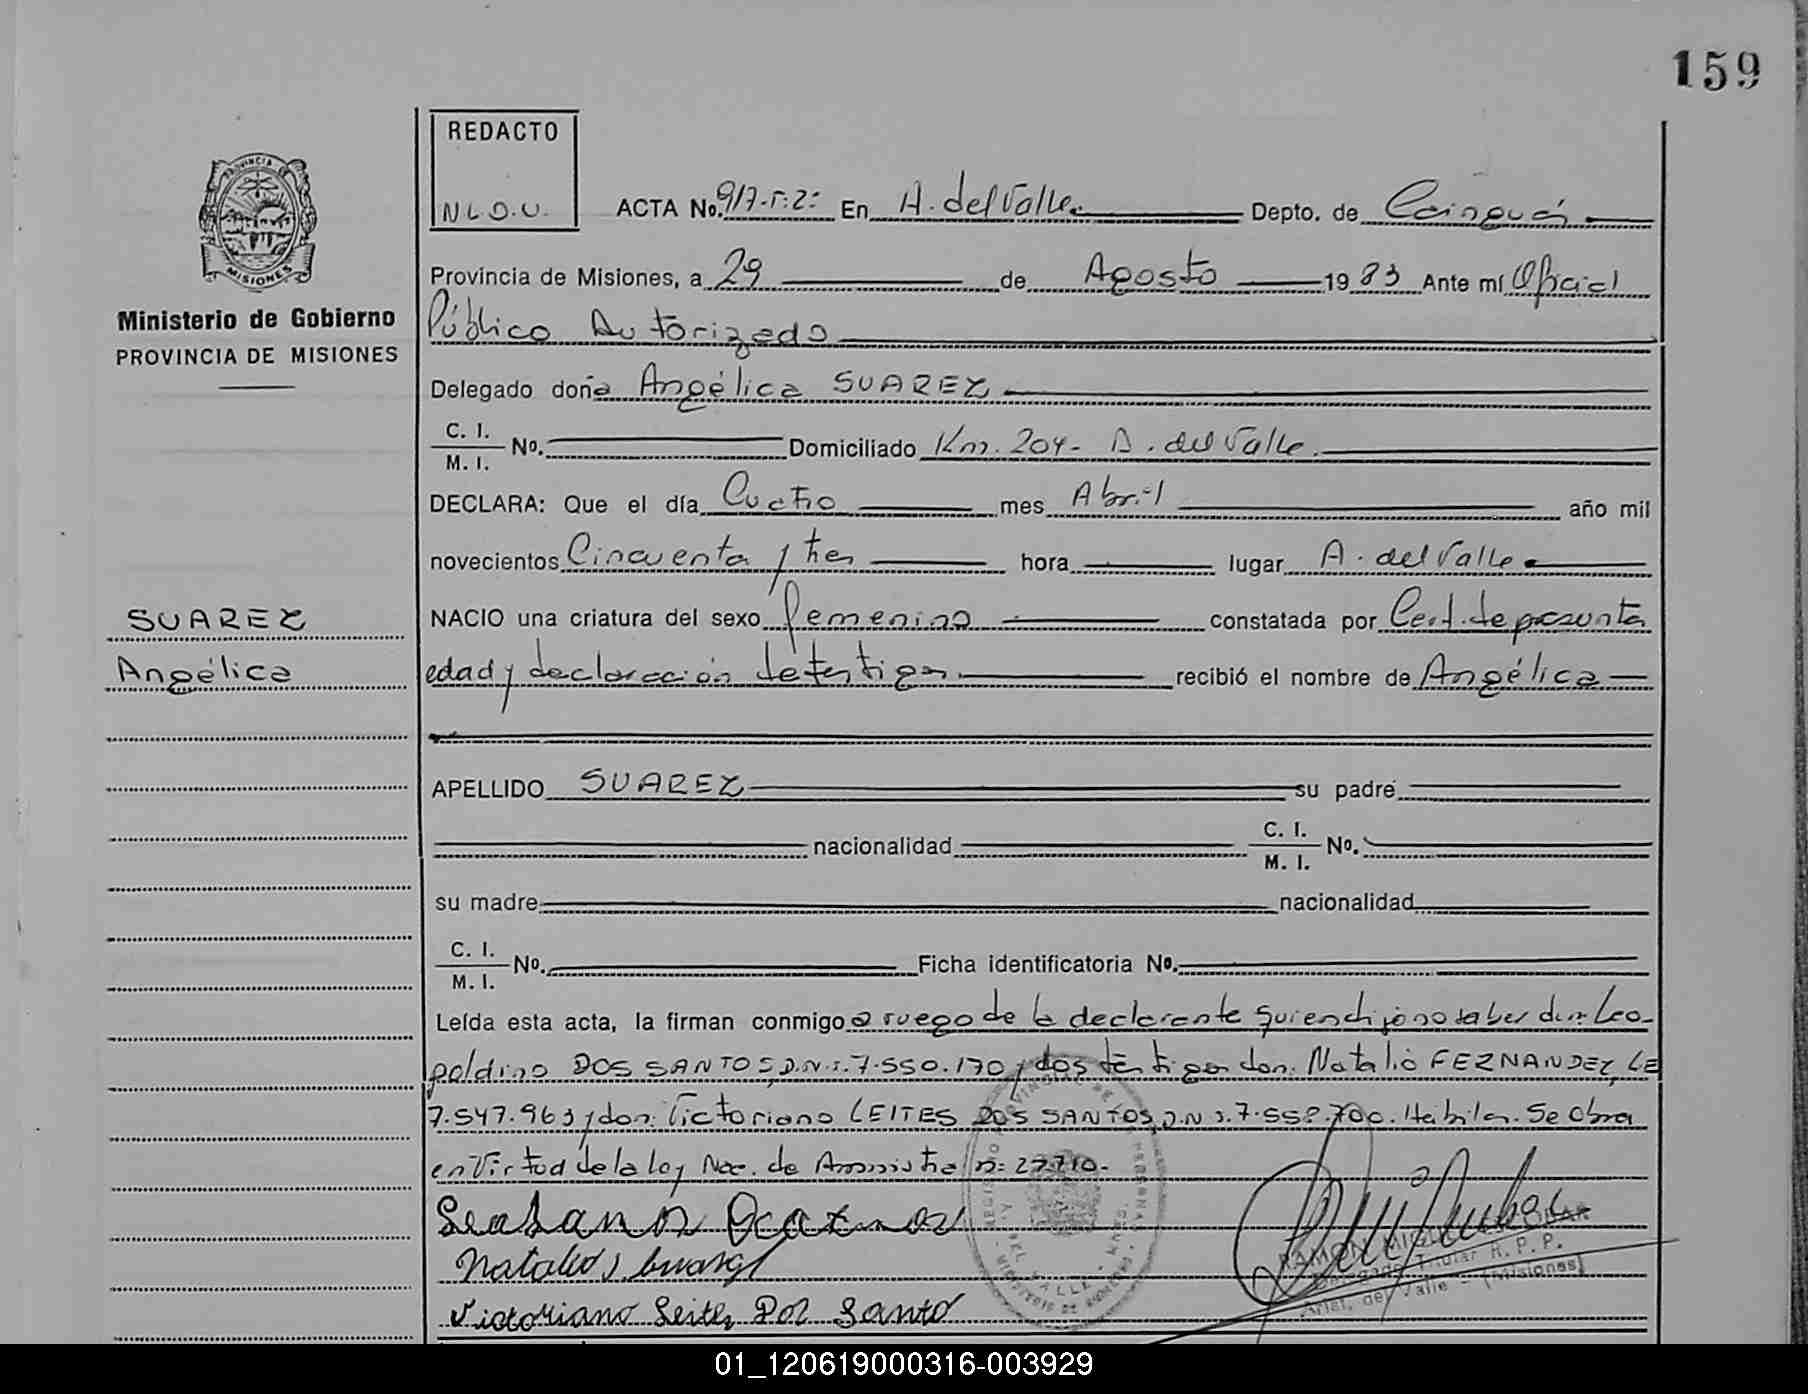 159
REDACTO
N L D.U.
ACTA No. 917-T:2: En A. del Valle Depto. de Cainguás
Provincia de Misiones, a 29 de Agosto 19 83 Ante mí Oficial
Público Autorizado
Delegado doña Angélica SUAREZ
C. I.
M. I. No. Domiciliado Km. 204- A. del Valle.
DECLARA: Que el día Cuatro mes Abril año mil
novecientos Cincuenta y tres hora lugar A. del Valle
NACIO una criatura del sexo femenino constatada por Cert. de presunta
edad y declaración de testigos. recibió el nombre de Angélica
APELLIDO SUAREZ su padre
nacionalidad C. I.
M. I. No.
su madre nacionalidad
C. I.
M. I. No. Ficha identificatoria No.
Leída esta acta, la firman conmigo a ruego de la declarante quien dijo no saber don: Leo-
poldino DOS SANTOS, D.N.I. 7.550.170 y dos testigos don: Natalio FERNANDEZ, LE
7.547.963 y don: Victoriano LEITES DOS SANTOS, D.N.I. 7.558.700. Hábiles. Se Obra
en Virtud de la ley Nac. de Amnistia n:
Victoriano Leites Dos Santo
PROVINCIA DE
MISIONES
Ministerio de Gobierno
PROVINCIA DE MISIONES
SUAREZ
Angélica
RAMON MIGUEL
Delegado Titular R. P. P.
Arist. del Valle - (Misiones)
01_120619000316-003929